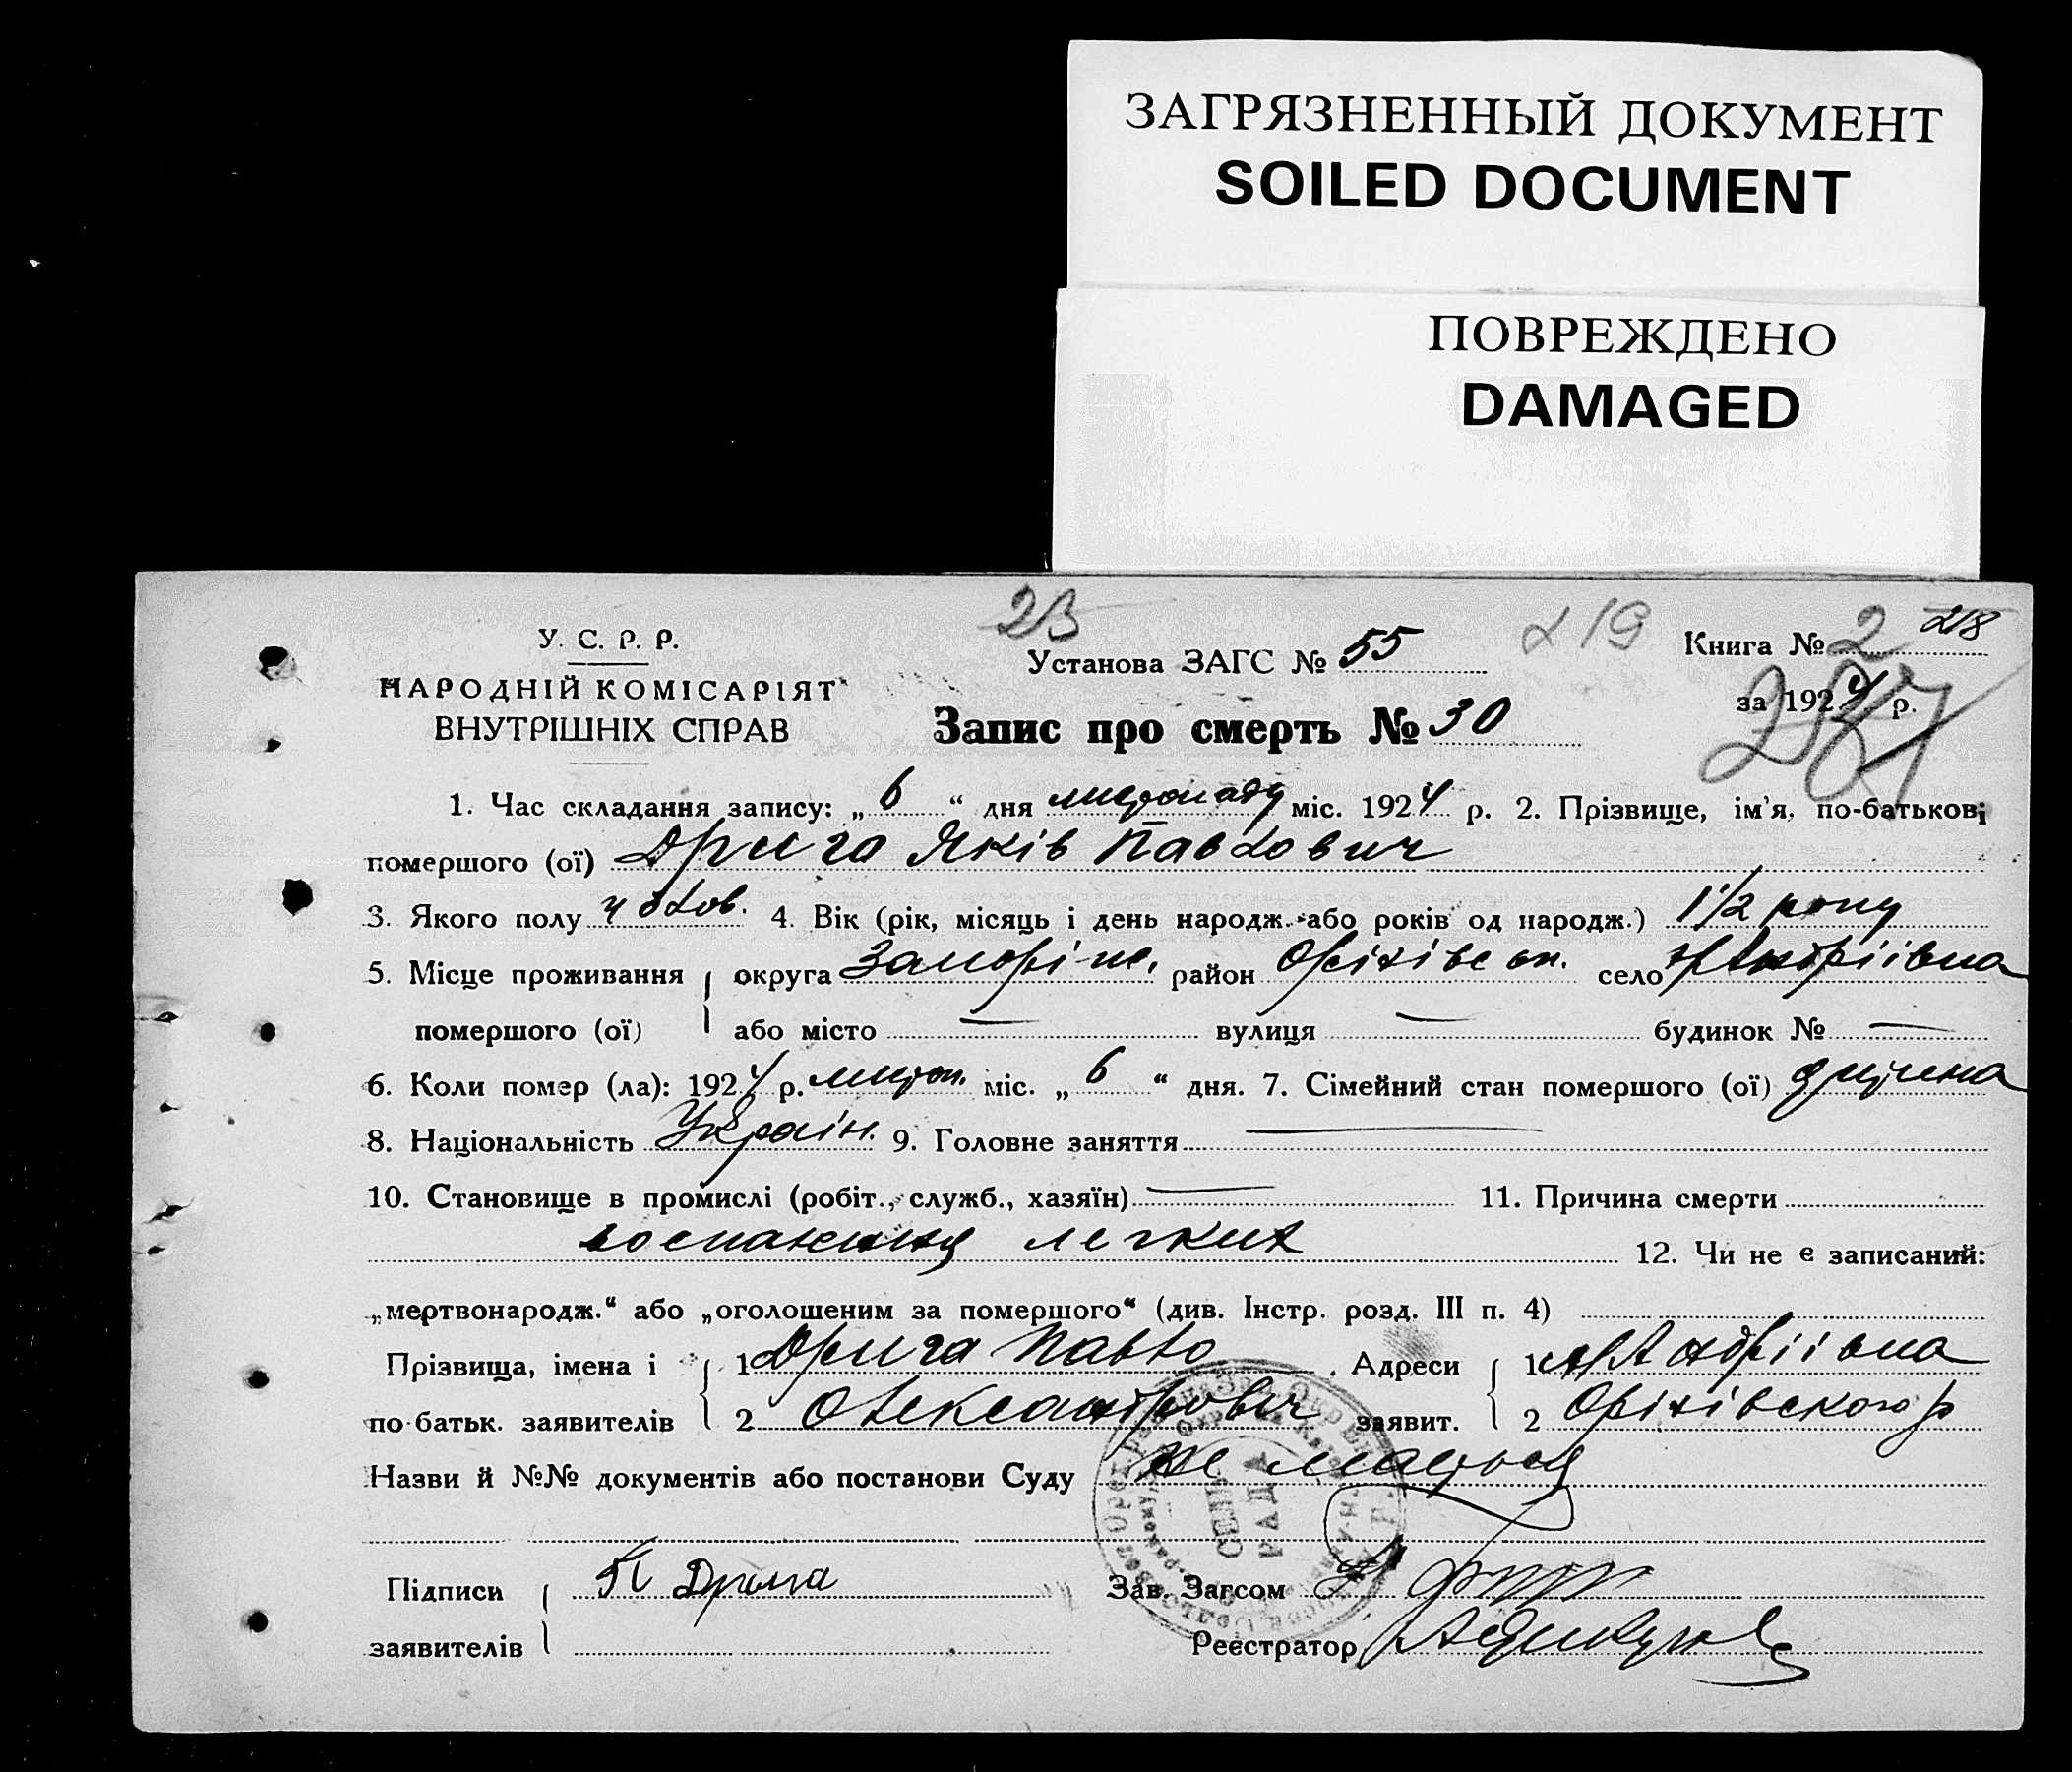 ЗАГРЯЗНЕННЫЙ ДОКУМЕНТ
SOILED DOCUMENT
ПОВРЕЖДЕНО
DAMAGED
23 219 218
У. С. Р. Р. Установа ЗАГС № 55 Книга № 2
НАРОДНІЙ КОМІСАРІЯТ за 1924 р.
ВНУТРІШНІХ СПРАВ Запис про смерть № 30
1. Час складання запису: „6“ дня листопаду міс. 1924 р. 2. Прізвище, ім'я, по-батькові
помершого (ої) Дрига Яків Павлович
3. Якого полу чолов. 4. Вік (рік, місяць і день народж. або років од народж.) 1 1/2 року
5. Місце проживання округа Запоріж. район Оріхівськ. село Андріівка
помершого (ої) або місто — вулиця — будинок № —
6. Коли помер (ла): 1924 р. листоп. міс. „6“ дня. 7. Сімейний стан помершого (ої) дитина
8. Національність Україн. 9. Головне заняття —
10. Становище в промислі (робіт., служб., хазяїн) — 11. Причина смерти
воспаления легких 12. Чи не є записаний:
„мертвонародж.“ або „оголошеним за помершого“ (див. Інстр. розд. III п. 4)
Прізвища, імена і 1 Дрига Павло Адреси 1 Андріівка
по-батьк. заявителів 2 Олександрович заявит. 2 Оріхівского р
Назви й №№ документів або постанови Суду не маеться
Підписи П Дрига Зав. Загсом
заявителів Реєстратор